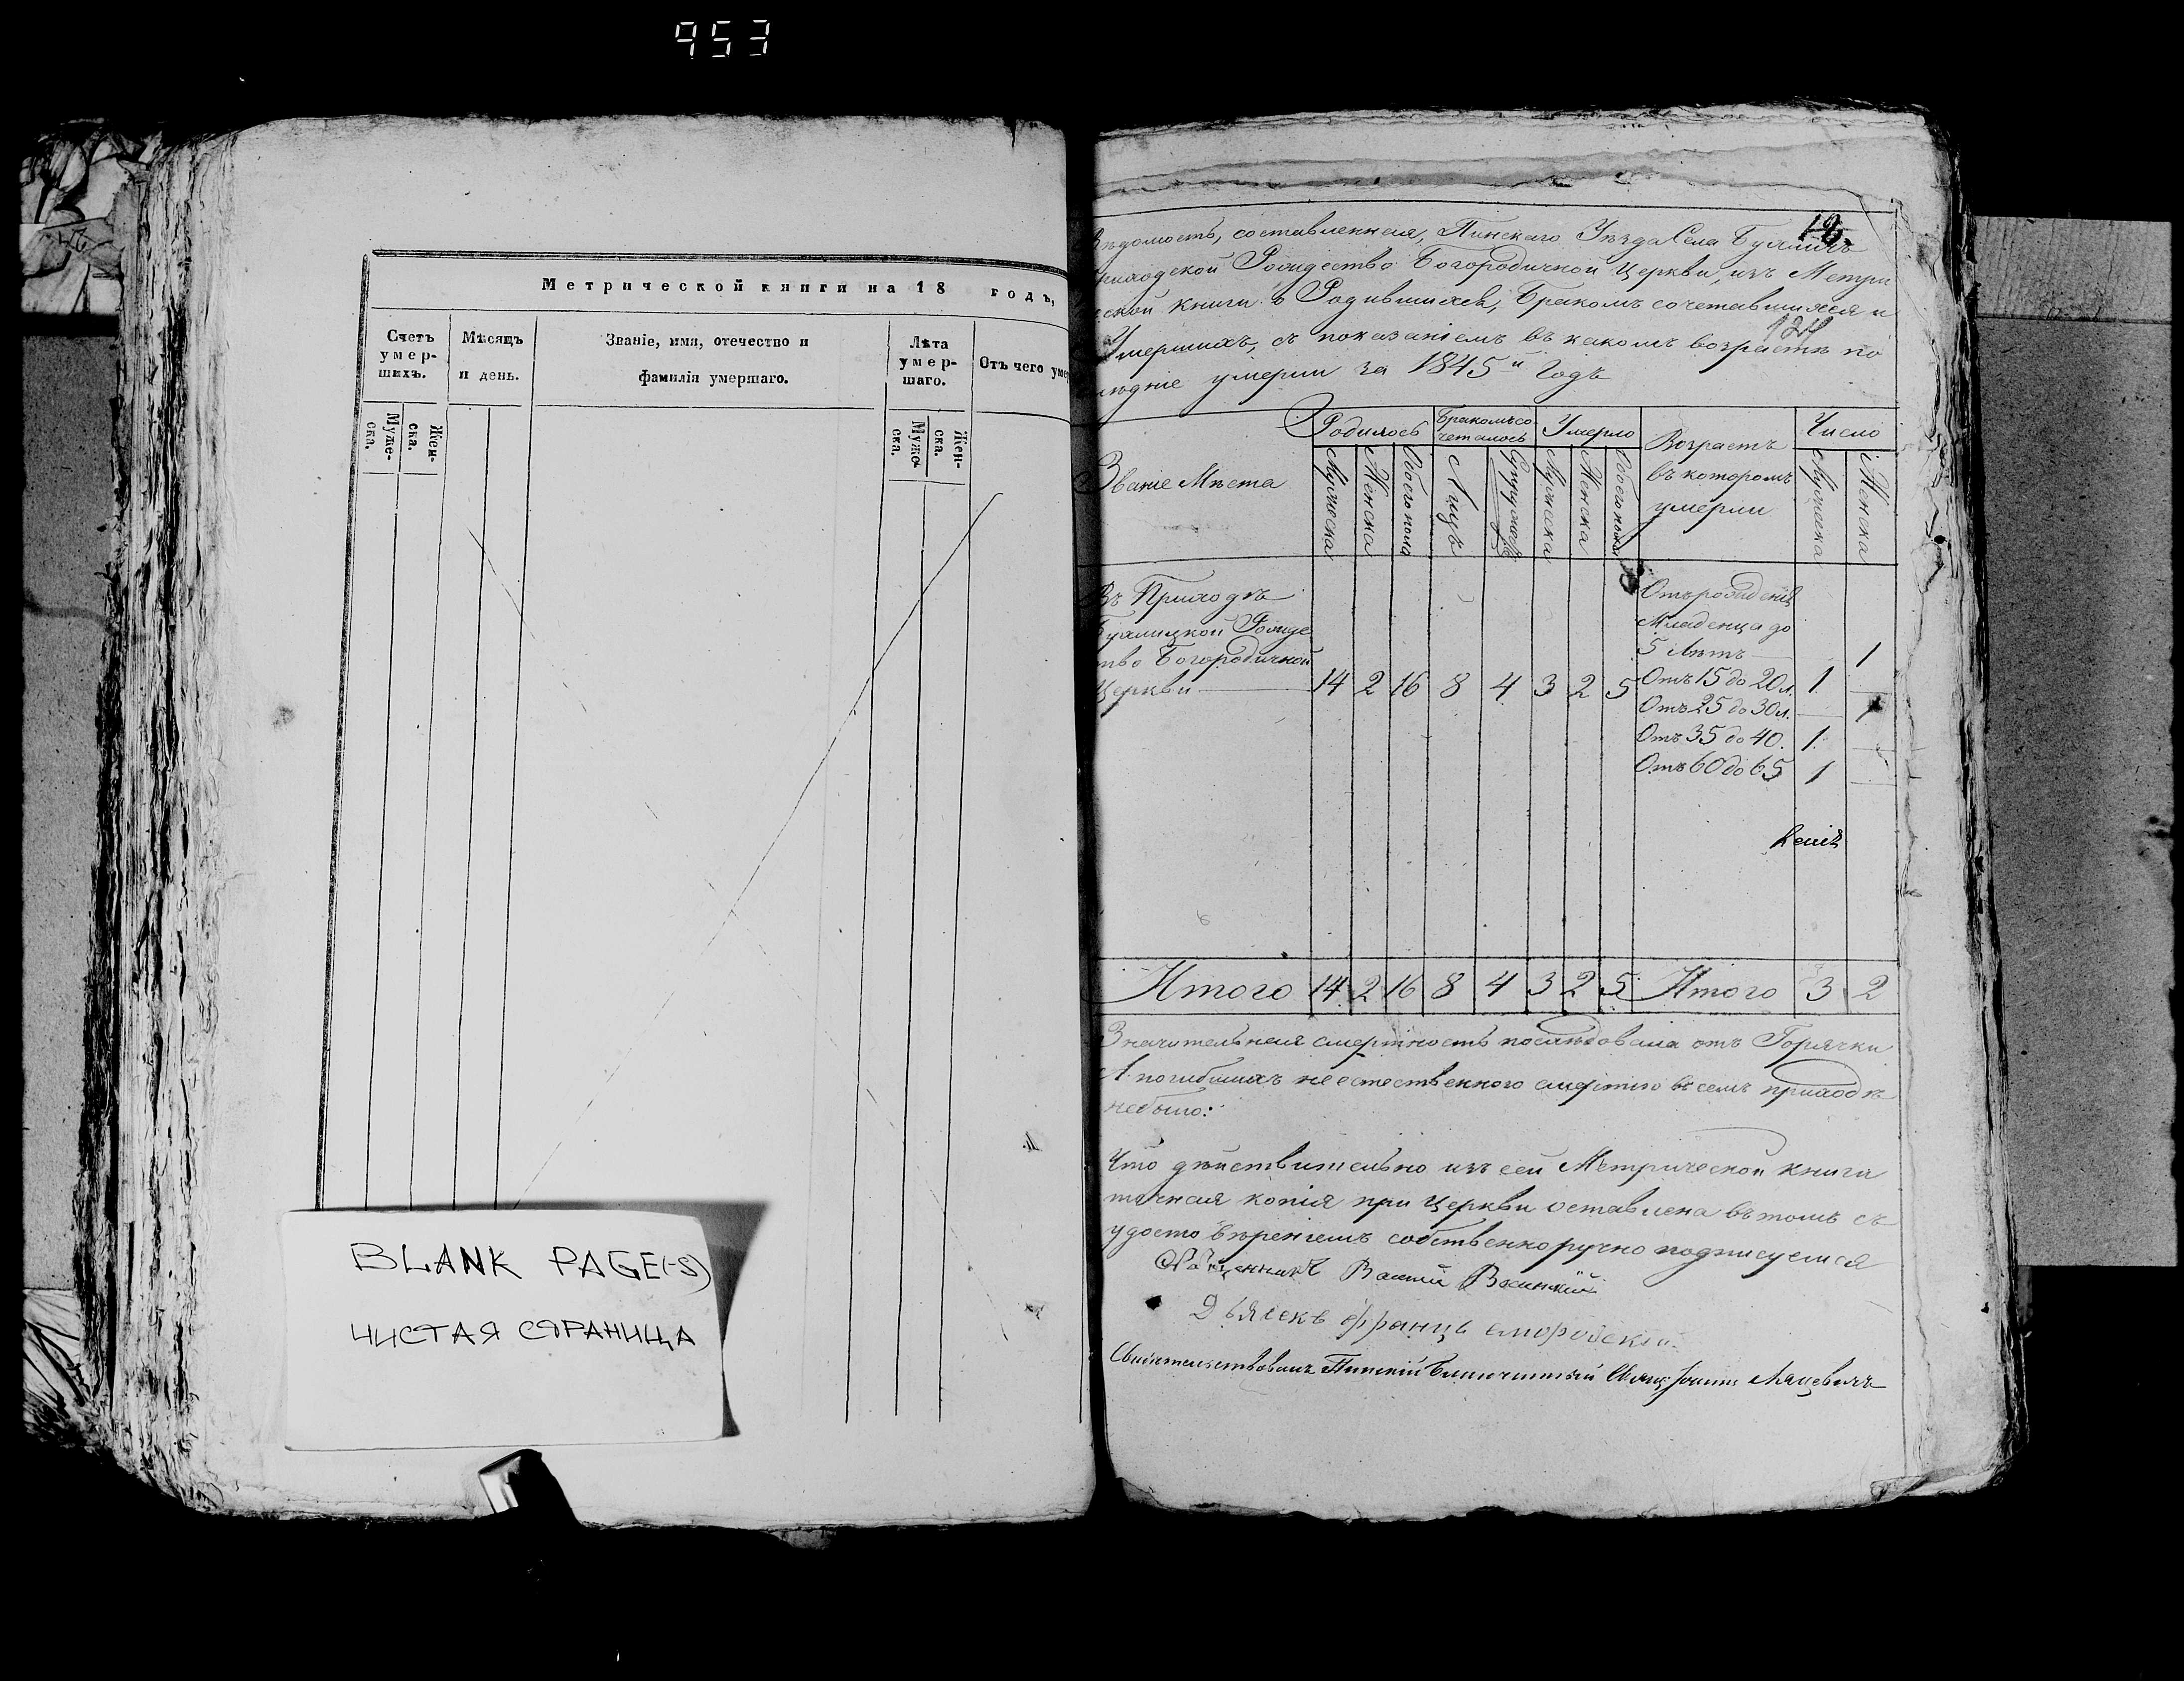 953
Метрической книги на 18 годъ,
Счетъ умер-шихъ.
Мѣсяцъ и день.
Званіе, имя, отечество и
фамилія умершаго.
Лѣта умер-шаго.
Отъ чего уме
Муже-ска.
Жен-ска.
Мужо-ска.
Жен-ска.
BLANK PAGE(-S)
ЧИСТАЯ СТРАНИЦА
ѣдомость, составленная, Пинскаго Уѣзда Села
риходской Рождество Богородичной Церкви, изъ Метри
ской книги о Родившихся, Бракомъ сочетавшихся и
Умершихъ, съ показаніемъ въ какомъ возрастѣ по
лѣдніе умерли за 1845й Годъ
Родилось
Бракомъ со-
четалось
Умерло
Возрастъ
въ которомъ
умерли
Число
Званіе Мѣста
Мужеска
Женска
Обоего пола
Лицъ
Супружествъ
Мужеска
Женска
Обоего пола
Мужеска
Женска
Въ Приходѣ
Рожде
тво Богородичной
Церкви 14 2 16 8 4 3 2 5
Отъ рожденія
Младенца до
5 Лѣтъ 1
Отъ 15 до 20 л. 1
Отъ 25 до 30 л. 1
Отъ 35 до 40. 1
Отъ 60 до 65 1
Итого 14 2 16 8 4 3 2 5 Итого 3 2
Значительная смертность послѣдовала отъ Горячки
А погибшихъ неестественного смертію въ семъ приходѣ
небыло:
Что дѣйствительно изъ сей Метрической книги
точная копія при Церкви оставлена въ томъ съ
удостовѣреніемъ собственноручно подписуемся
Священникъ
Дьячекъ Францъ
Свидетельствовалъ Пинскій Благочинный Свящ: Іоаннъ